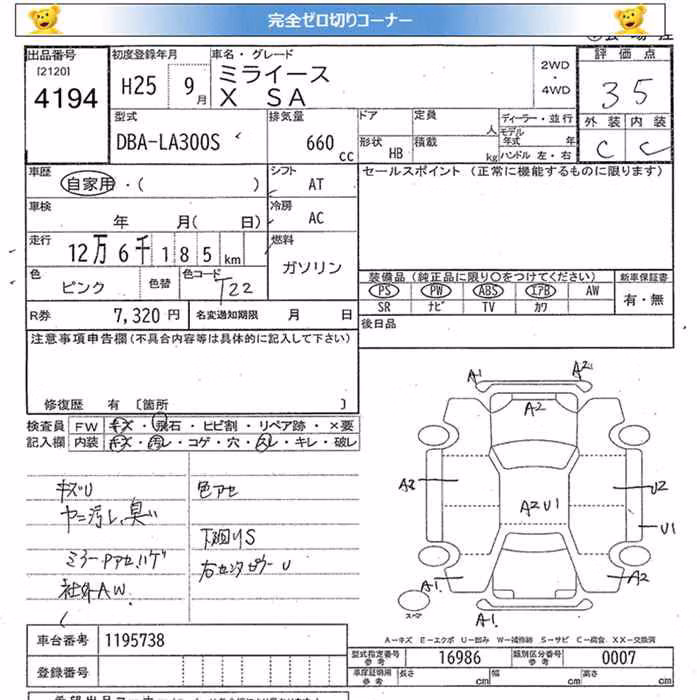 完全ゼロ切りコーナー
出品番号
[2120]
4194
初度登録年月
H25 9月
車名・グレード
ミライース
X SA
2WD
・
4WD
評価点
35
外装 内装
C C
型式
DBA-LA300S
排気量
660 cc
ドア
定員
人
形状
HB
積載
kg
ディーラー・並行
モデル年式 年
ハンドル 左・右
車歴
自家用・( )
シフト
AT
セールスポイント (正常に機能するものに限ります)
車検
年 月( 日)
冷房
AC
走行
12万 6千 185 km
燃料
ガソリン
色
ピンク
色替
色コード
T22
装備品 (純正品に限り○をつけてください)
新車保証書
PS PW ABS エアB AW
SR ナビ TV カワ
有・無
R券 7,320 円
名変通知期限 月 日
後日品
注意事項申告欄(不具合内容等は具体的に記入して下さい)
修復歴 有 〔箇所 〕
検査員
記入欄
FW キズ・飛石・ヒビ割・リペア跡・×要
内装 キズ・汚レ・コゲ・穴・スレ・キレ・破レ
キズU
ヤニ汚し、臭い
ミラーPアセ、ハゲ
社外AW.
色アセ
下廻りS
右センタピラーU
A1 A2
A2
A2
A2U1
U2
U1
A1
A2
A1
スペア
A-キズ E-エクボ U-凹み W-補修跡 S-サビ C-腐食 XX-交換済
車台番号 1195738
登録番号
型式指定番号
参考
16986
類別区分番号
参考
0007
車庫証明用
参考
長さ 幅 高さ